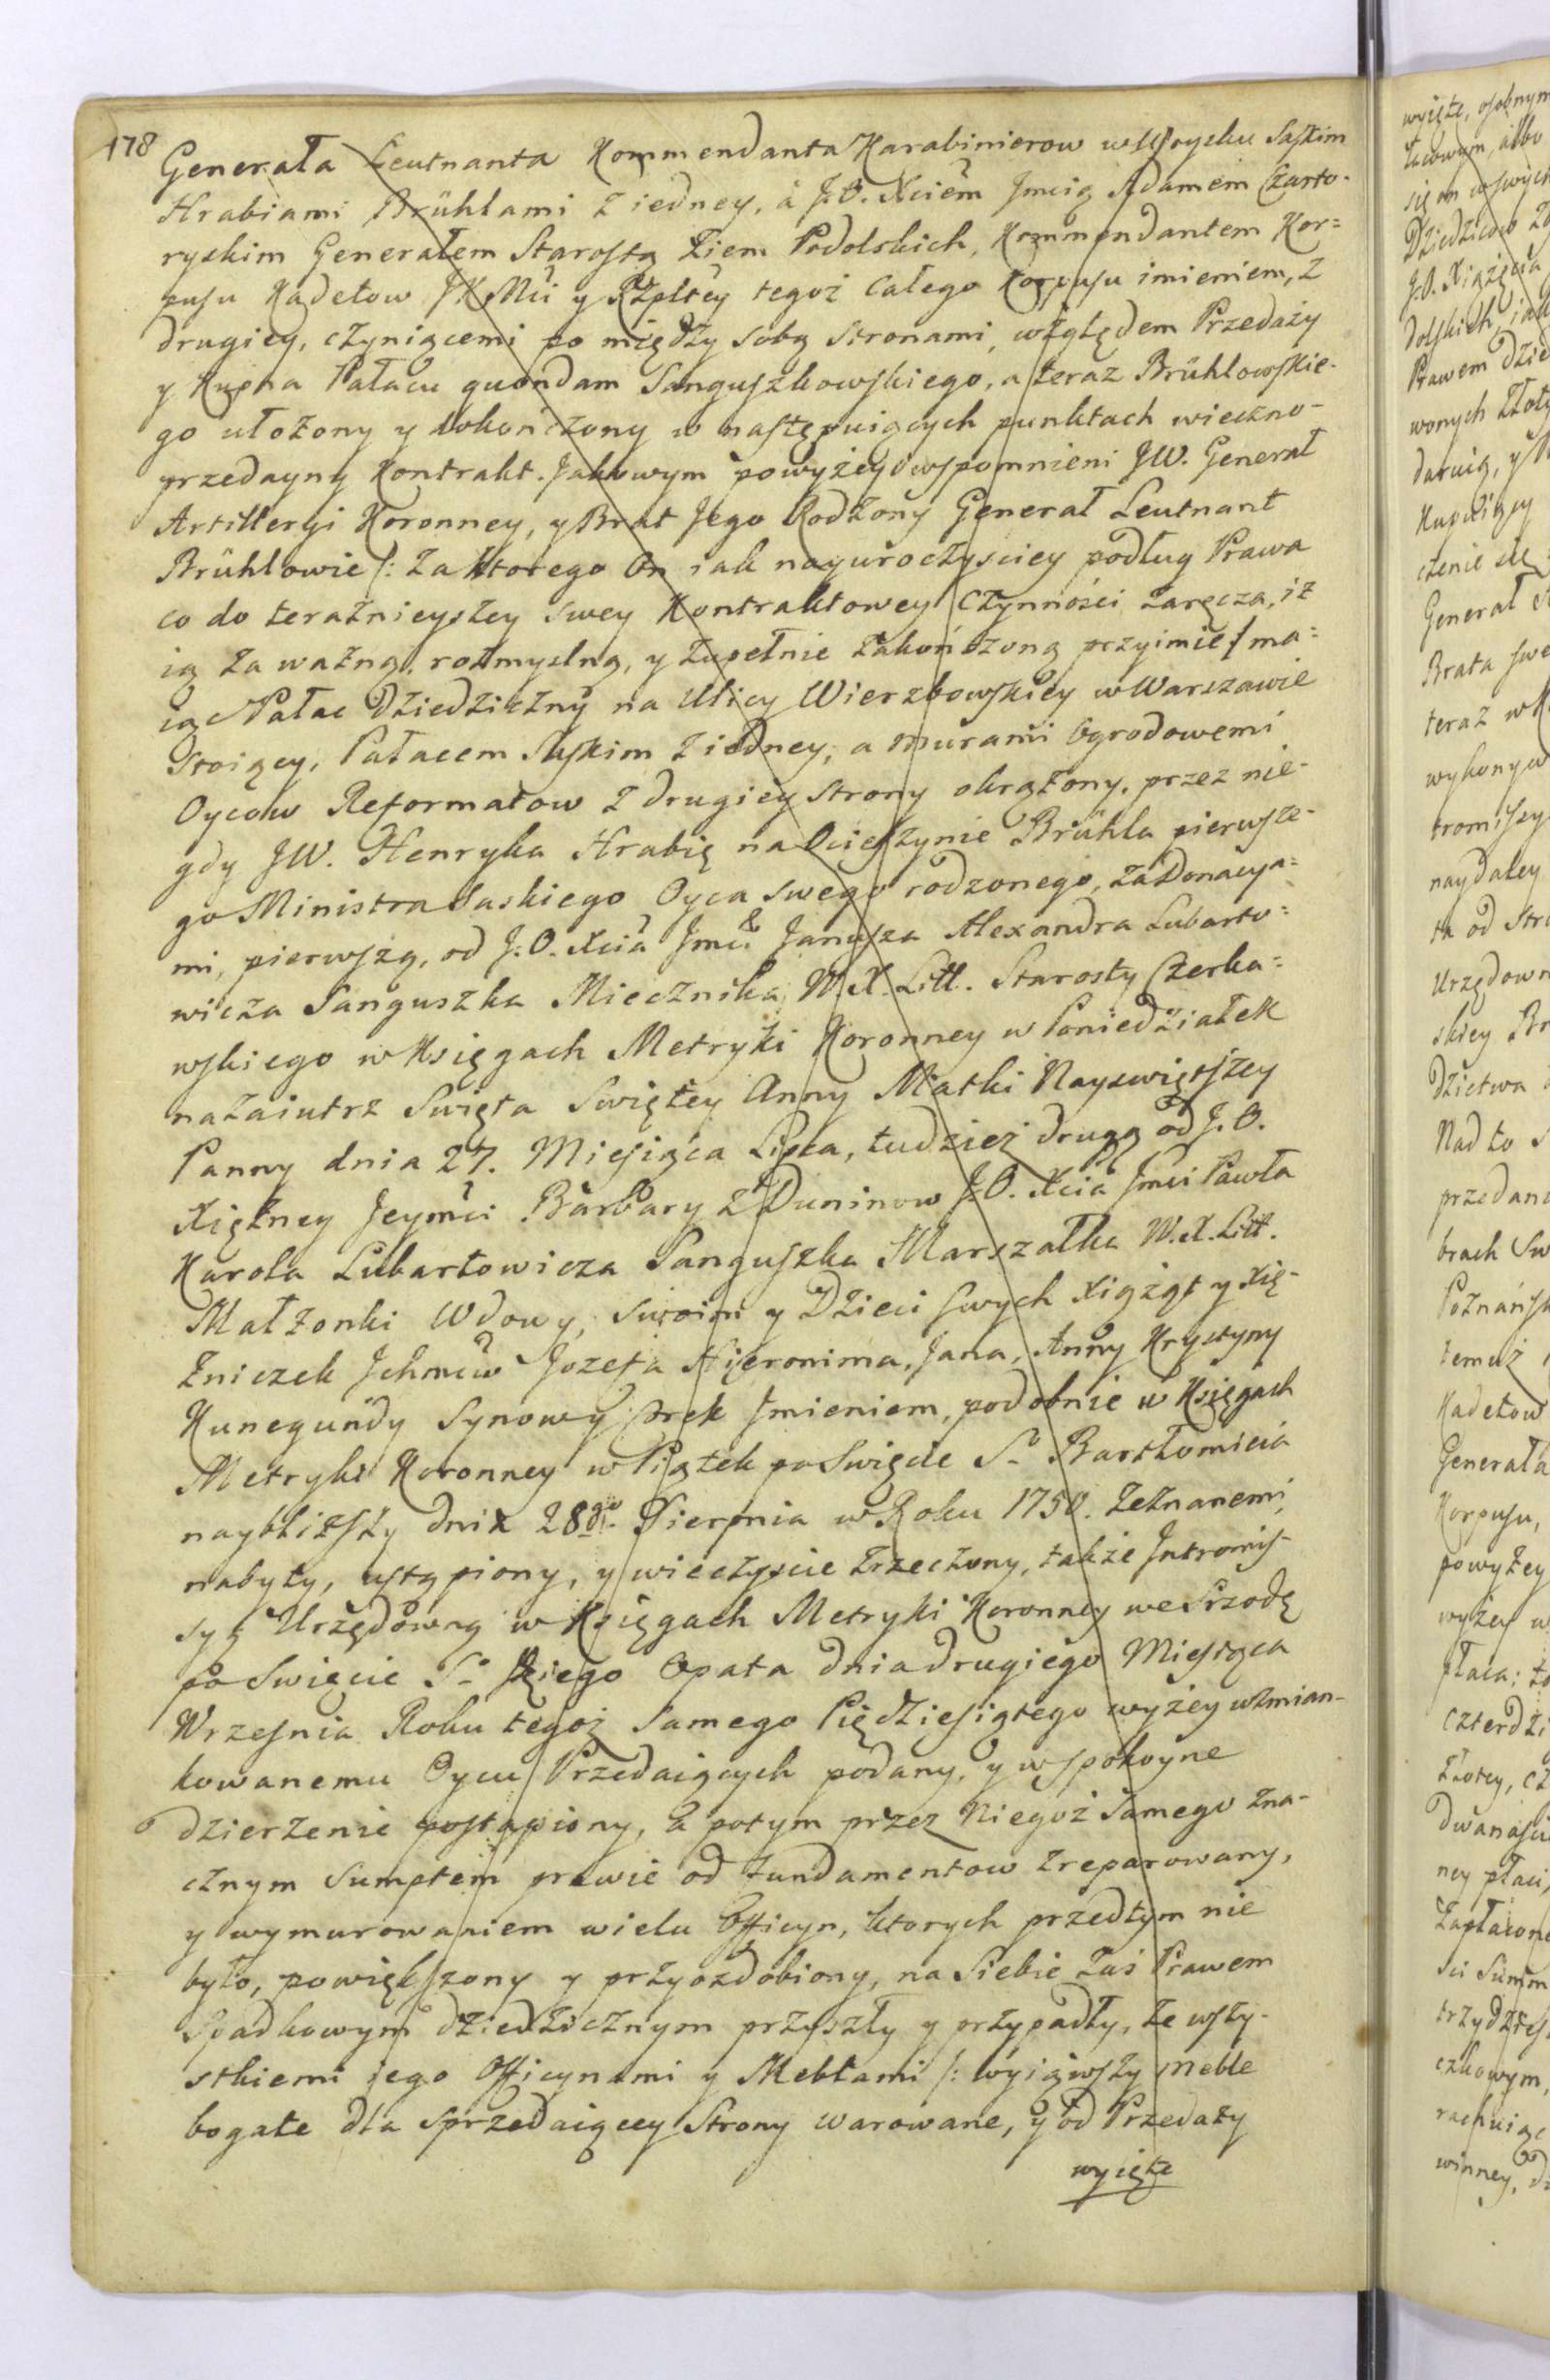 178
Generała Leutnanta Kommendanta Karabinierow w Woysku Saskim
Hrabiami Brühlami z iedney, á J.O. Xciem Jmcią Adamem Czarto-
ryskim Generałem Starostą Ziem Podolskich, Kommendantem Kor=
pusu Kadetow JKMci y Rzpltey tegoż całego Korpusu imieniem, z
drugiey, czyniącemi po między sobą stronami, względem Przedaży
y Kupna Pałacu quondam Sanguszkowskiego, a teraz Brühlowskie-
go ułożony y dokończony w następuiących punktach wieczno-
przedayny Kontrakt. Jakowym powyżey wspomnieni JW. Generał
Artilleryi Koronney, y Brat Jego Rodzony Generał Leutnant
Brühlowie /: za ktorego On iak nayuroczyściey podług Prawa
co do teraźnieyszey swey Kontraktowey czynności zaręcza, iż
ią za ważną, rozmyślną, y zupełnie zakończoną przyimie / ma=
iąc Pałac dziedziczny na Ulicy Wierzbowskiey w Warszawie
stoiący, Pałacem Saskim z iedney, a murami Ogrodowemi
Oycow Reformatow z drugiey strony okrążony, przez nie-
gdy JW. Henryka Hrabię na Ocieszynie Brühla pierwsze-
go Ministra Saskiego Oyca swego rodzonego, za Donacya=
mi, pierwszą, od J.O. Xcia Jmci Janusza Alexandra Lubarto=
wicza Sanguszka Miecznika W.X. Litt. Starosty Czerka=
wskiego w Księgach Metryki Koronney w Poniedziałek
nazaiutrz Swięta Swiętey Anny Matki Nayswiętszey
Panny dnia 27. Miesiąca Lipca, tudzież drugą od J.O.
Xiężney Jeymci Barbary z Duninow J.O. Xcia Jmci Pawła
Karola Lubartowicza Sanguszka Marszałka W.X. Litt.
Małżonki Wdowy, swoim y Dzieci swych Xiążąt y Xię-
żniczek Jchmciw Jozefa Hieronima, Jana, Anny Krystyny
Kunegundy Synow y Corek Jmieniem, podobnie w Księgach
Metryki Koronney w Piątek po Swięcie S. Bartłomieia
naybliższy dnia 28go Sierpnia w Roku 1750. zeznanemi,
nabyty, ustąpiony, y wieczyscie zrzeczony, także Intromis-
syą Urzędową w Księgach Metryki Koronney we Srzodę
po Swięcie S. Jdziego Opata dnia drugiego Miesiąca
Wrzesnia Roku tegoż samego Piędziesiątego wyżey wzmian-
kowanemu Oycu Przedaiących podany, y w spokoyne
dzierzenie postąpiony, a potym przez Niegoż samego zna-
cznym sumptem prawie od fundamentow zreparowany,
y wymurowaniem wielu Officyn, ktorych przedtym nie
było, powiększony y przyozdobiony, na Siebie zaś Prawem
Spadkowym dziedzicznym przyszły y przypadły, ze wszy-
stkiemi iego Officynami y Meblami /: wyiąwszy meble
bogate dla sprzedaiącey Strony warowane, y od Przedaży
wyięte